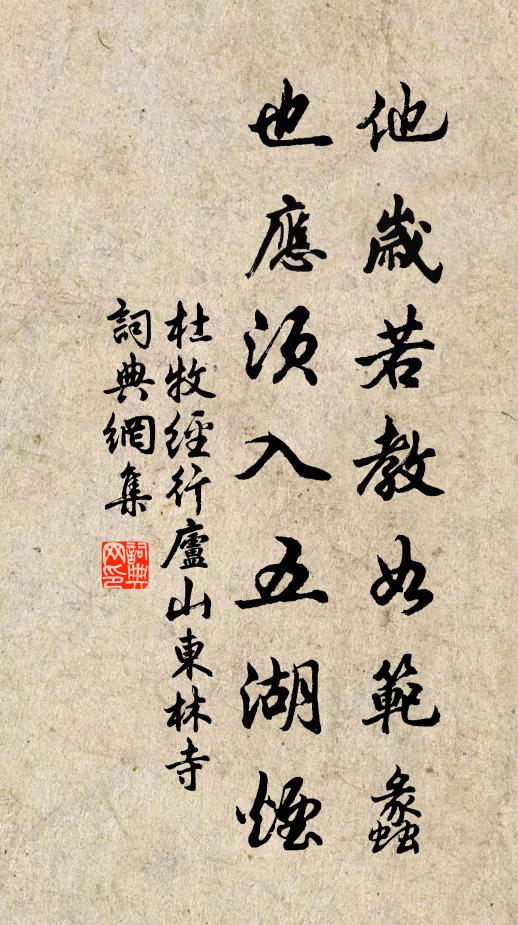 他歲若教如範蠡
也應須入五湖煙
杜牧經行廬山東林寺
詞典網集
詞典
网印